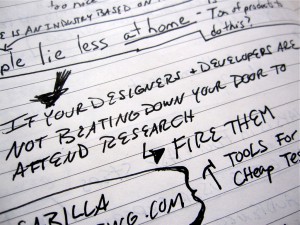 too nice
E IS AN INDUSTRY BASED ON
ple lie less at home - Ton of products
do this?
IF YOUR DESIGNERS + DEVELOPERS ARE
NOT BEATING DOWN YOUR DOOR TO
ATTEND RESEARCH
↳ FIRE THEM
↑ TOOLS FO
Cheap Tes
SABILLA
ING.COM